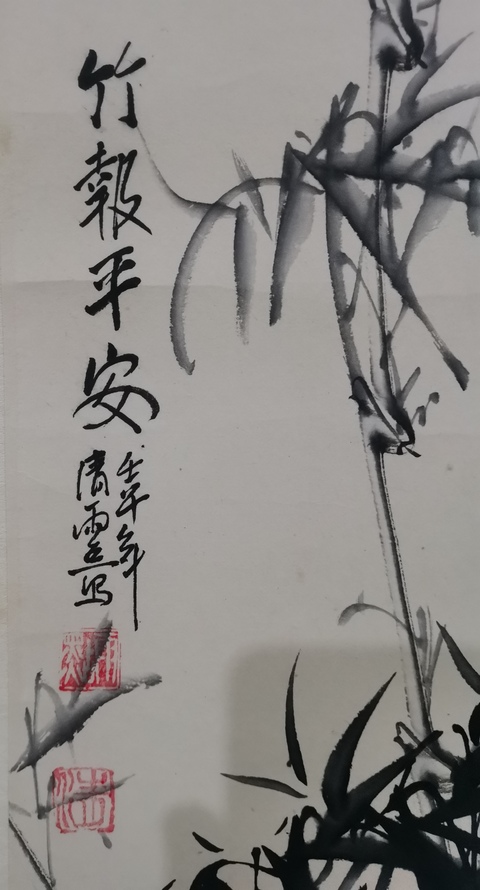 竹報平安
壬午年
清雲写